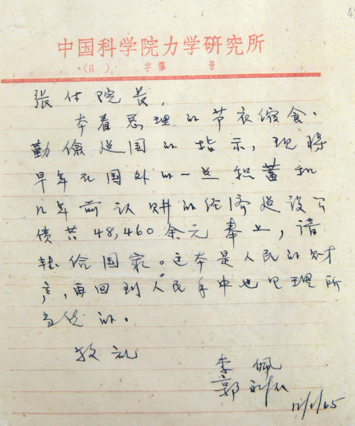 中国科学院力学研究所
(6) 字第 号
张付院长,
本着总理的节衣缩食、
勤俭建国的指示,现将
早年在国外的一点积蓄和
几年前认购的经济建设公
债共48,460余元奉上,请
转给国家。这本是人民的财
产,再回到人民手中也是理所
当然的。
敬礼
李佩
郭永怀